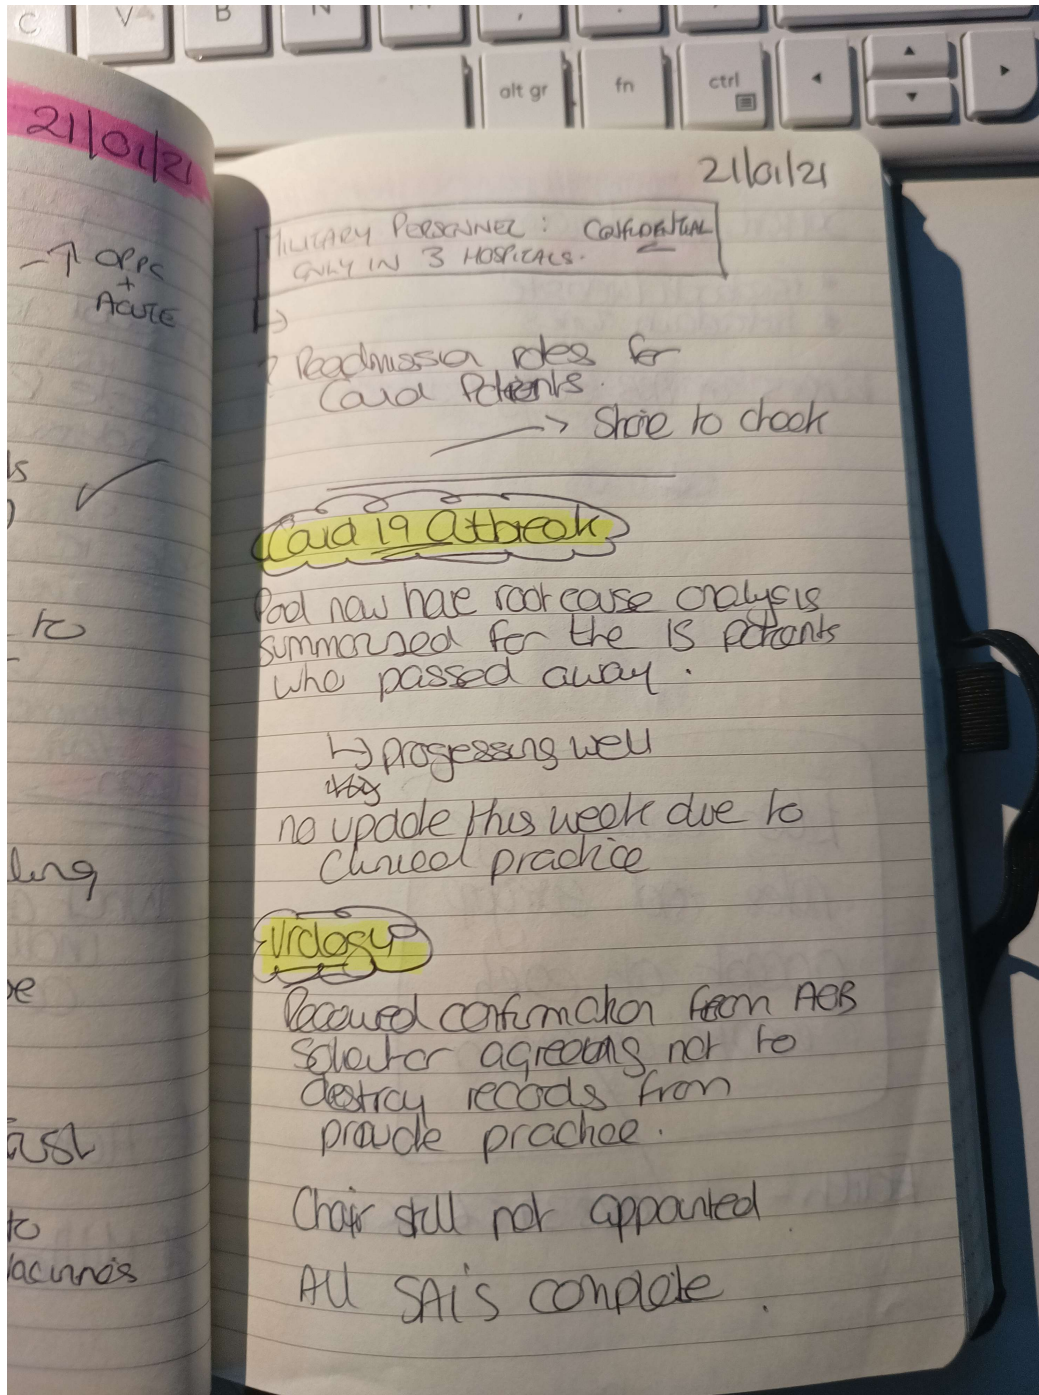 C V B N M
alt gr fn ctrl
21/01/21
↑ OPPS
+
ACUTE
ls
to
ling
to
21/01/21
MILITARY PERSONNEL : CONFIDENTIAL
ONLY IN 3 HOSPITALS.
? Readmission rates for
Covid Patients.
→ Shane to check
Covid 19 Outbreak
now have root cause analysis
summarised for the 15 patients
who passed away.
↳ progressing well
no update this week due to
Clinical practice
Urology
Received confirmation from AOB
Solicitor agreeing not to
destroy records from
private practice.
Chair still not appointed
All SAI's complete.